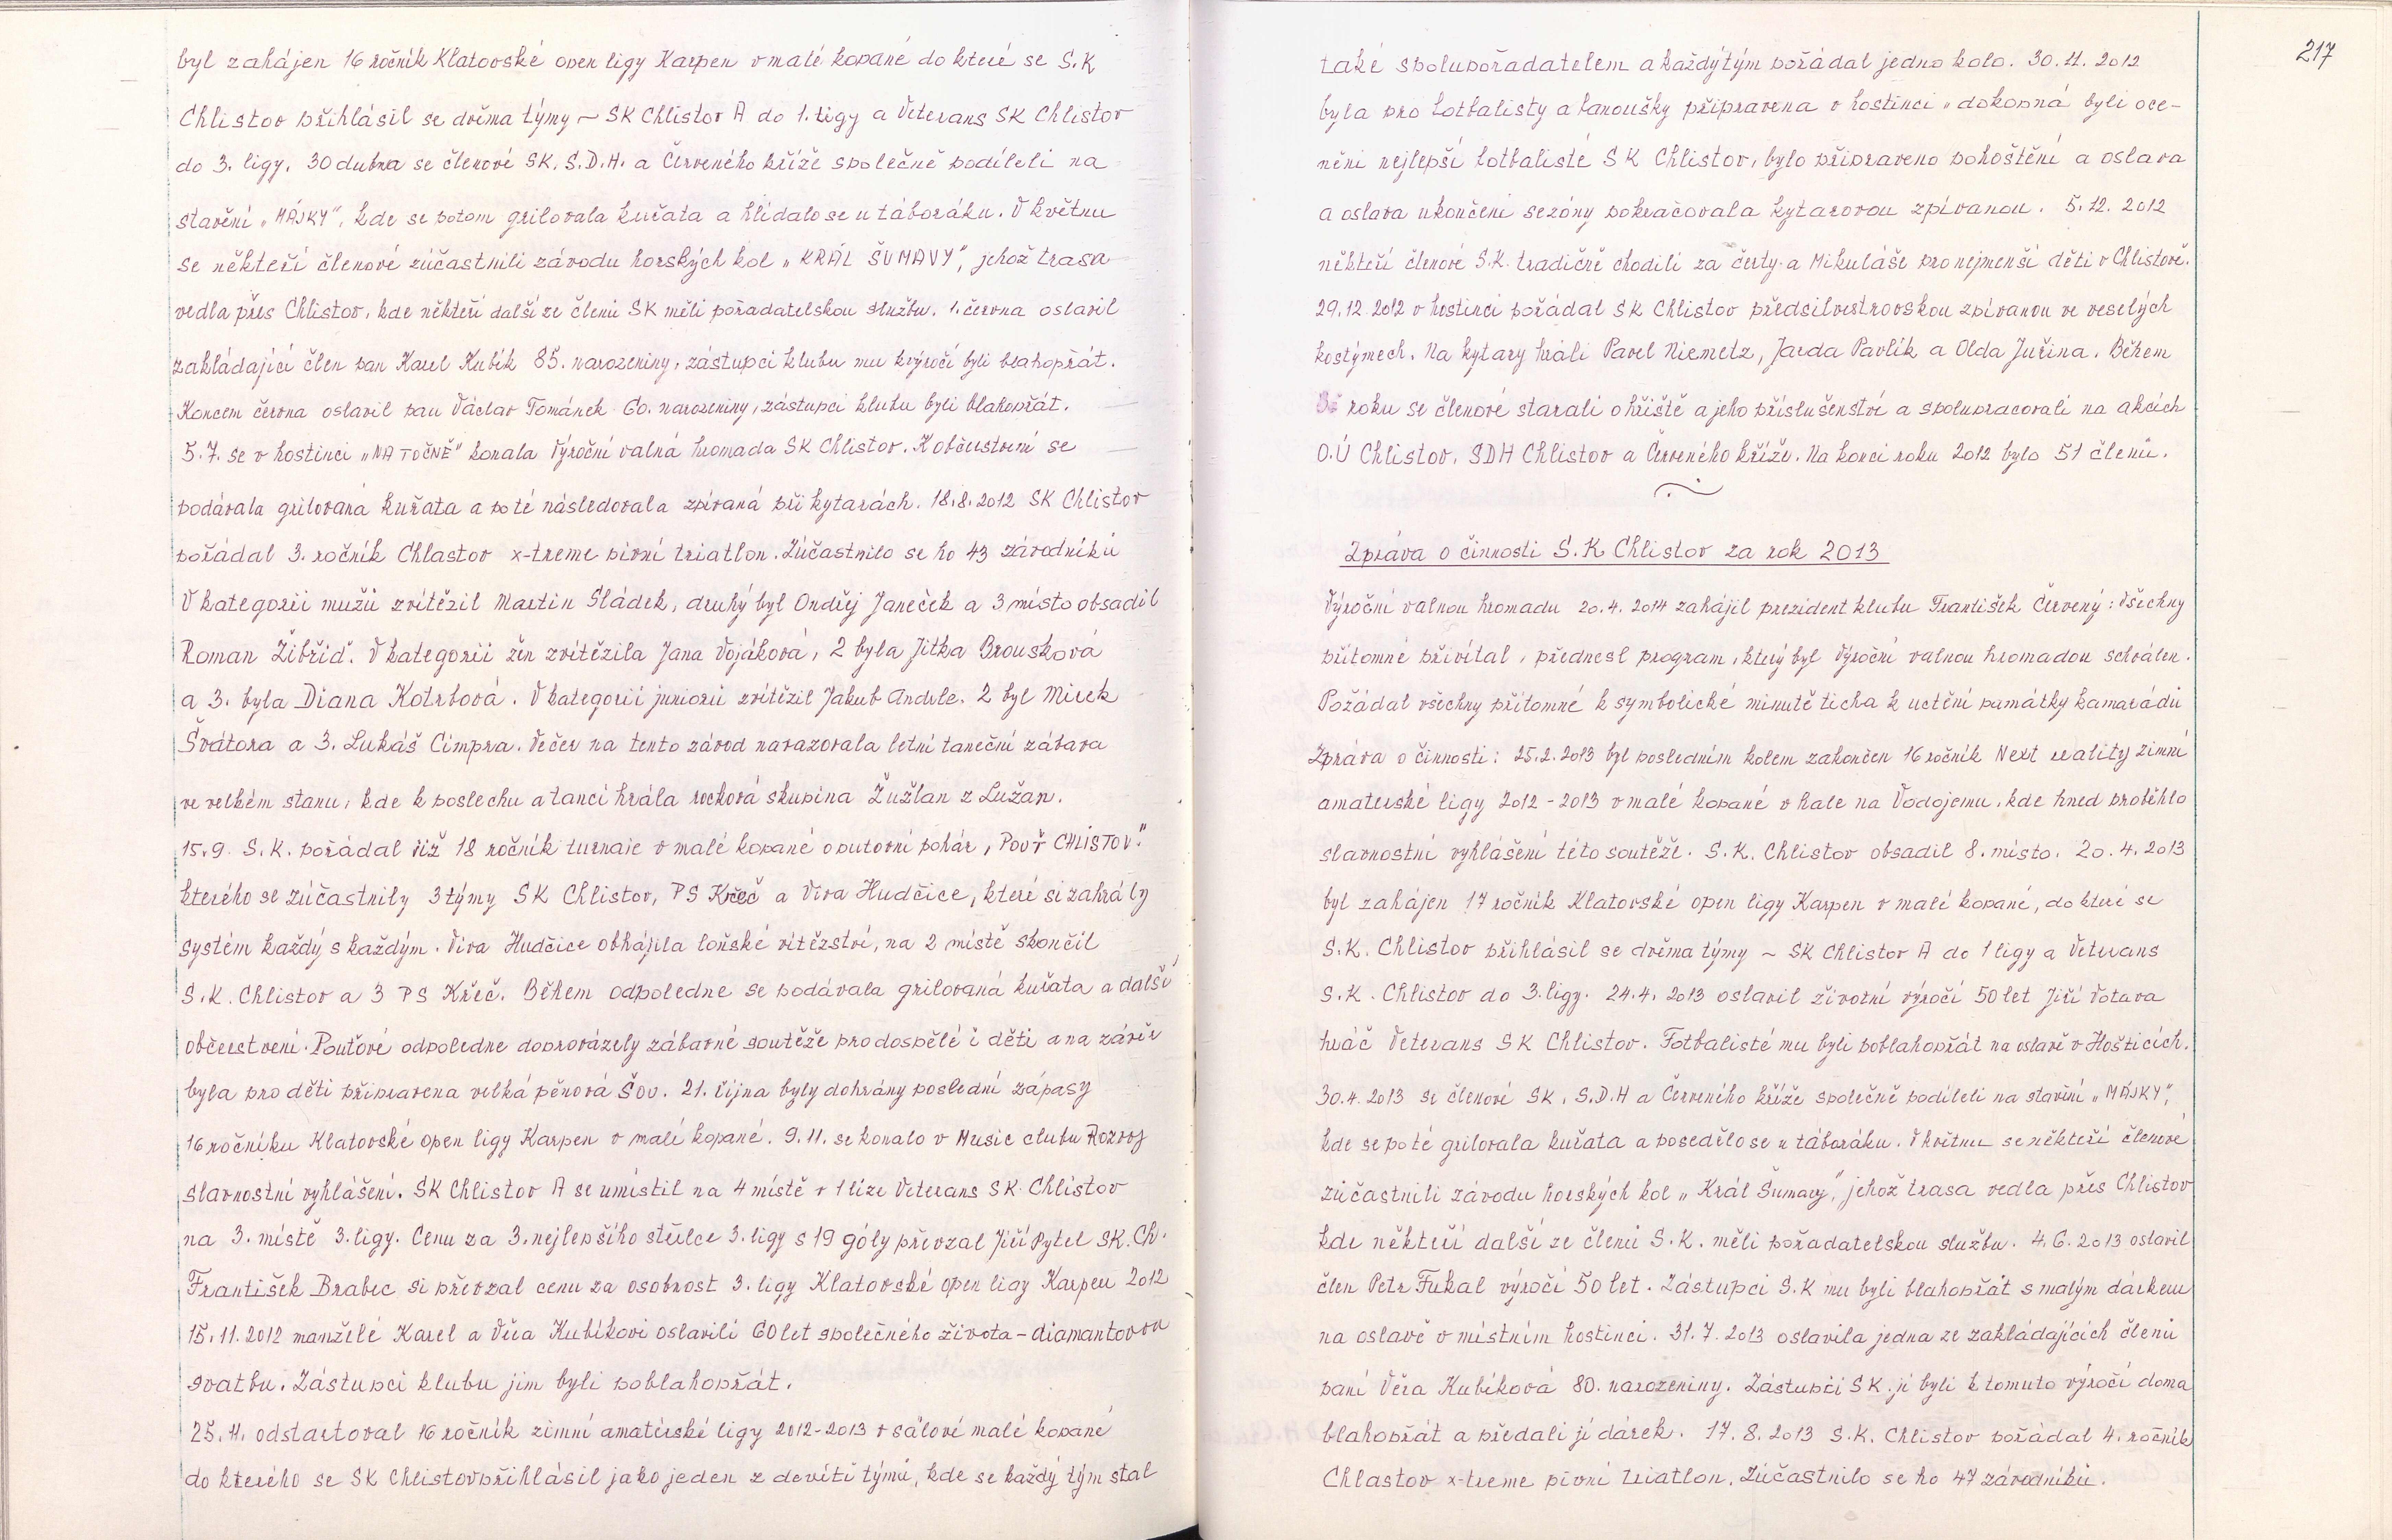 byl zahájen 16 ročník Klatovské open ligy Karpen v malé kopané do které se S.K
Chlistov přihlásil se dvěma týmy ~ SK Chlistov A do 1. ligy a Veterans SK Chlistov
do 3. ligy. 30 dubna se členové SK. S.D.H. a Červeného kříže společně podíleli na
stavění „MÁJKY", kde se potom grilovala kuřata a hlídalo se u táboráku. V květnu
se někteří členové zúčastnili závodu horských kol „KRÁL ŠUMAVY", jehož trasa
vedla přes Chlistov, kde někteří další ze členů SK měli pořadatelskou službu. 1. června oslavil
zakládající člen pan Karel Kubík 85. narozeniny, zástupci klubu mu k výročí byli blahopřát.
Koncem června oslavil pan Václav Tománek 60. narozeniny, zástupci klubu byli blahopřát.
5.7. se v hostinci „NA TOČNĚ" konala Výroční valná hromada SK Chlistov. K občerstvení se
podávala grilovaná kuřata a poté následovala zpívaná při kytarách. 18.8.2012 SK Chlistov
pořádal 3. ročník Chlastov x-treme pivní triatlon. Zúčastnilo se ho 43 závodníků
V kategorii mužů zvítězil Martin Sládek, druhý byl Ondřej Janeček a 3 místo obsadil
Roman Žibřid. V kategorii žen zvítězila Jana Vojáková, 2 byla Jitka Brousková
a 3. byla Diana Kotrbová. V kategorii juniorů zvítězil Jakub Andrle. 2 byl Mirek
Švátora a 3. Lukáš Cimpra. Večer na tento závod navazovala letní taneční zábava
ve velkém stanu, kde k poslechu a tanci hrála rocková skupina Žužlan z Lužan.
15.9. S.K. pořádal již 18 ročník turnaje v malé kopané o putovní pohár, POUŤ CHLISTOV."
kterého se zúčastnily 3 týmy SK Chlistov, PS Křeč a Viva Hudčice, které si zahrály
systém každý s každým. Viva Hudčice obhájila loňské vítězství, na 2 místě skončil
S.K. Chlistov a 3 PS Křeč. Během odpoledne se podávala grilovaná kuřata a další
občerstvení. Pouťové odpoledne doprovázely zábavné soutěže pro dospělé i děti a na závěr
byla pro děti připravena velká pěnová šou. 21. října byly dohrány poslední zápasy
16 ročníku Klatovské open ligy Karpen v malé kopané. 9.11. se konalo v Music clubu Rozvoj
slavnostní vyhlášení. SK Chlistov A se umístil na 4 místě v 1 lize Veterans SK Chlistov
na 3. místě 3. ligy. Cenu za 3. nejlepšího střelce 3. ligy s 19 góly převzal Jiří Pytel SK. Ch.
František Brabec si převzal cenu za osobnost 3. ligy Klatovské open ligy Karpen 2012
15.11.2012 manželé Karel a Věra Kubíkovi oslavili 60 let společného života – diamantovou
svatbu. Zástupci klubu jim byli poblahopřát.
25.11. odstartoval 16 ročník zimní amatérské ligy 2012-2013 v sálové malé kopané
do kterého se SK Chlistov přihlásil jako jeden z devíti týmů, kde se každý tým stal
217
také spolupořadatelem a každý tým pořádal jedno kolo. 30.11.2012
byla pro fotbalisty a fanoušky připravena v hostinci „dokopná byli oce-
něni nejlepší fotbalisté SK Chlistov, bylo připraveno pohoštění a oslava
a oslava ukončení sezóny pokračovala kytarovou zpívanou. 5.12.2012
někteří členové S.K. tradičně chodili za čerty a Mikuláše pro nejmenší děti v Chlistově.
29.12.2012 v hostinci pořádal SK Chlistov předsilvestrovskou zpívanou ve veselých
kostýmech. Na kytary hráli Pavel Niemetz, Jarda Pavlík a Olda Juřina. Během
roku se členové starali o hřiště a jeho příslušenství a spolupracovali na akcích
O.Ú Chlistov, SDH Chlistov a Červeného kříže. Na konci roku 2012 bylo 51 členů.
Zpráva o činnosti S.K Chlistov za rok 2013
Výroční valnou hromadu 20.4.2014 zahájil prezident klubu František Červený: Všechny
přítomné přivítal, přednesl program, který byl Výroční valnou hromadou schválen.
Požádal všechny přítomné k symbolické minutě ticha k uctění památky kamarádů
Zpráva o činnosti: 25.2.2013 byl posledním kolem zakončen 16 ročník Next reality zimní
amaterské ligy 2012-2013 v malé kopané v hale na Vodojemu, kde hned proběhlo
slavnostní vyhlášení této soutěže. S.K. Chlistov obsadil 8. místo. 20.4.2013
byl zahájen 17 ročník Klatovské open ligy Karpen v malé kopané, do které se
S.K. Chlistov přihlásil se dvěma týmy ~ SK Chlistov A do 1 ligy a Veterans
S.K. Chlistov do 3. ligy. 24.4.2013 oslavil životní výročí 50 let Jiří Votava
hráč Veterans SK Chlistov. Fotbalisté mu byli poblahopřát na oslavě v Hošticích.
30.4.2013 se členové SK, S.D.H a Červeného kříže společně podíleli na stavění „MÁJKY",
kde se poté grilovala kuřata a posedělo se u táboráku. V květnu se někteří členové
zúčastnili závodu horských kol „Král Šumavy", jehož trasa vedla přes Chlistov
kde někteří další ze členů S.K. měli pořadatelskou službu. 4.6.2013 oslavil
člen Petr Fukal výročí 50 let. Zástupci S.K mu byli blahopřát s malým dárkem
na oslavě v místním hostinci. 31.7.2013 oslavila jedna ze zakládajících členů
paní Věra Kubíková 80. narozeniny. Zástupci SK jí byli k tomuto výročí doma
blahopřát a předali jí dárek. 17.8.2013 S.K. Chlistov pořádal 4. ročník
Chlastov x-treme pivní triatlon. Zúčastnilo se ho 47 závodníků.